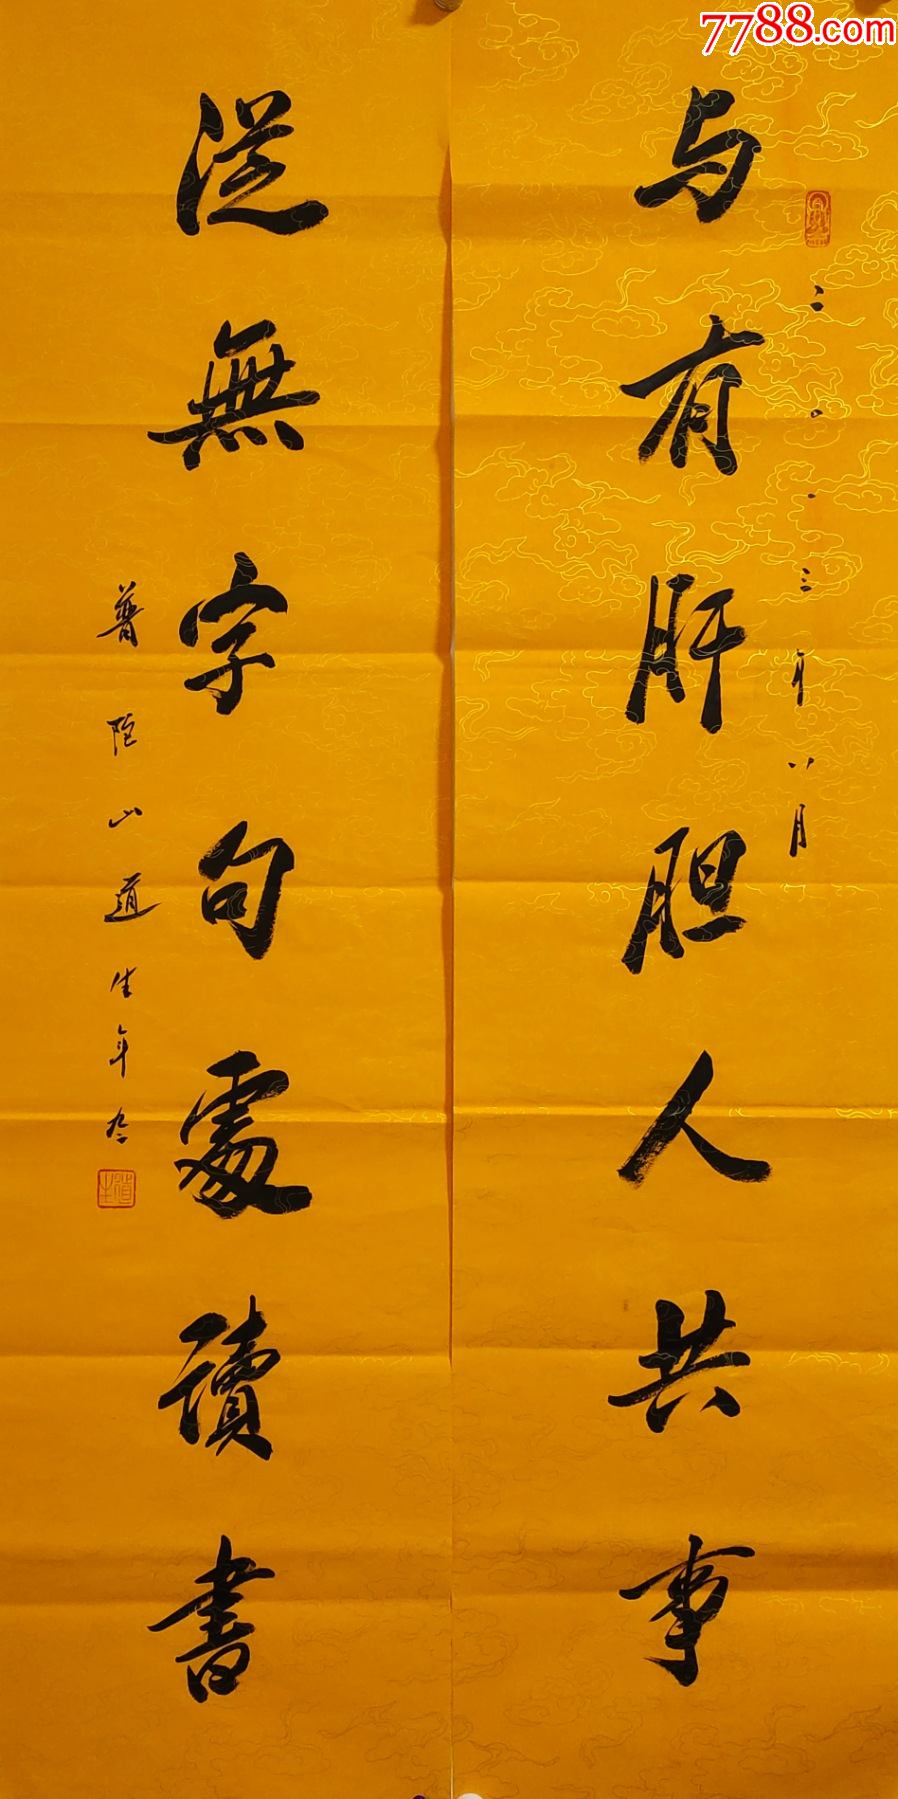 7788.com
与有肝胆人共事
二〇二三年八月
從無字句處讀書
普陀山道生年九十